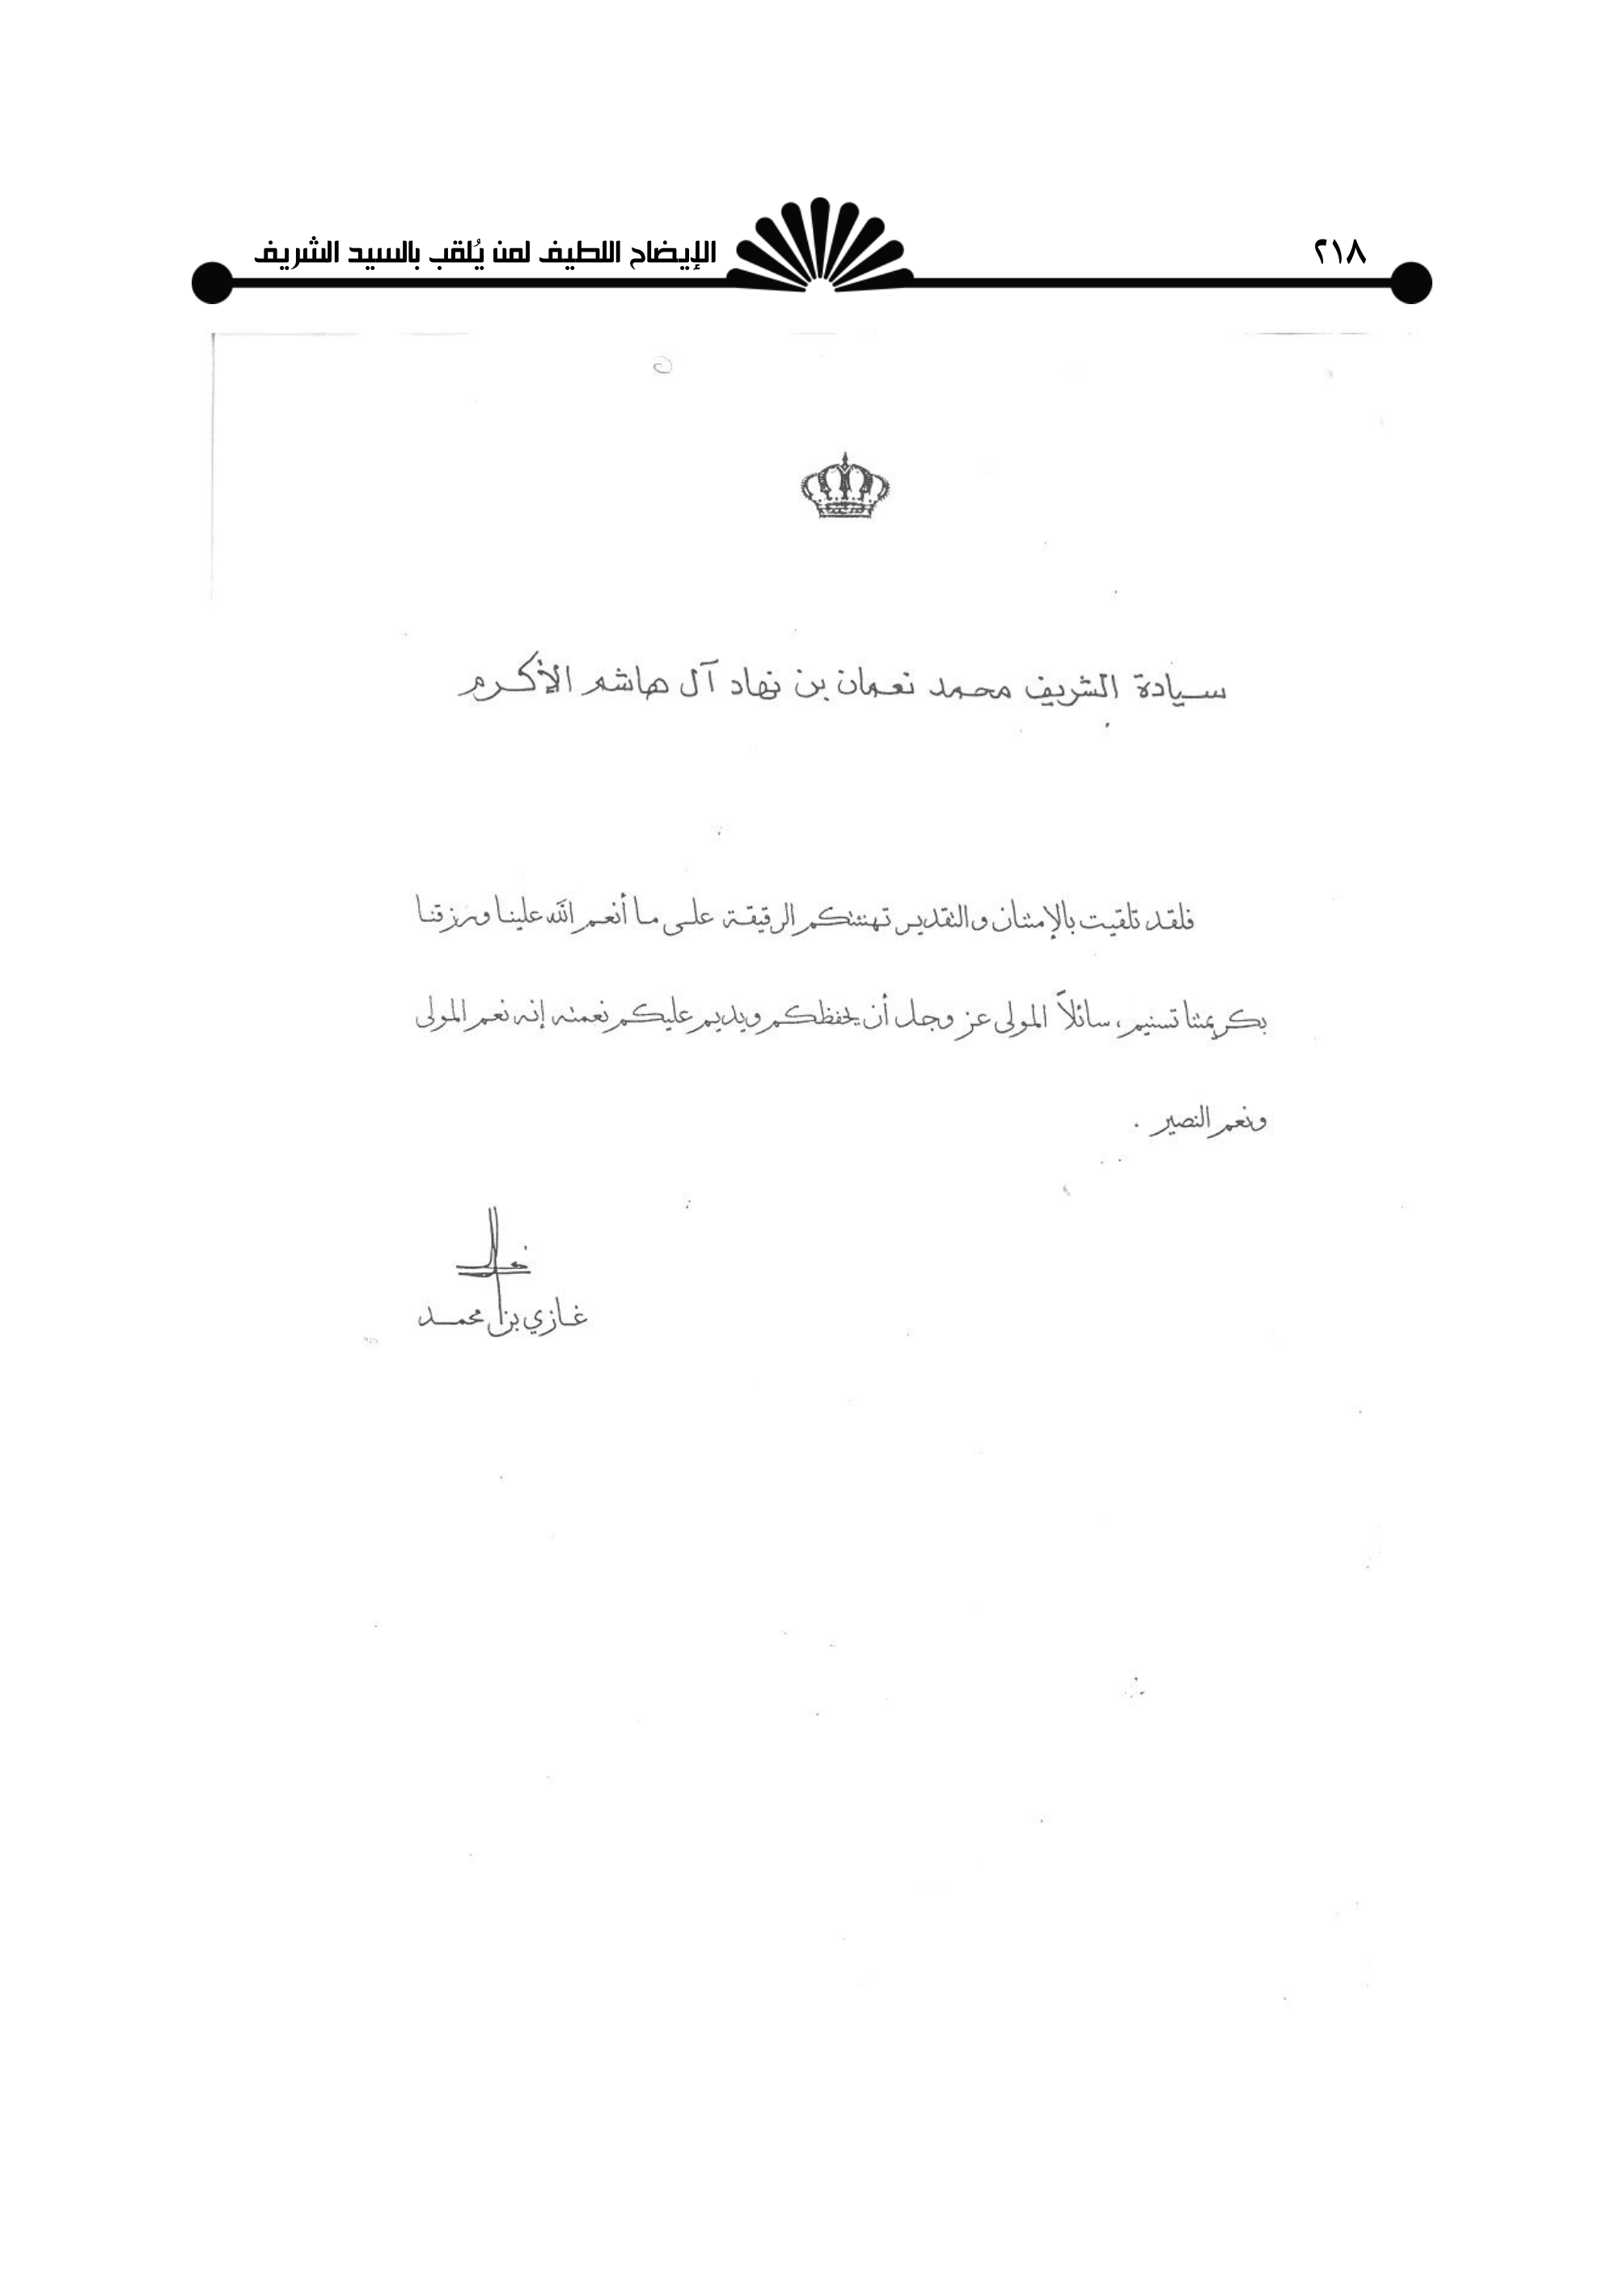 ٢١٨
الإيضاح اللطيف لمن يُلقب بالسيد الشريف
سيادة الشريف محمد نعمان بن نهاد آل هاشم الأكرم
فلقد تلقيت بالإمتنان والتقدير تهنئتكم الرقيقة على ما أنعم الله علينا ورزقنا
بكريمتنا تسنيم، سائلاً المولى عز وجل أن يحفظكم ويديم عليكم نعمته إنه نعم المولى
ونعم النصير .
غازي بن محمد